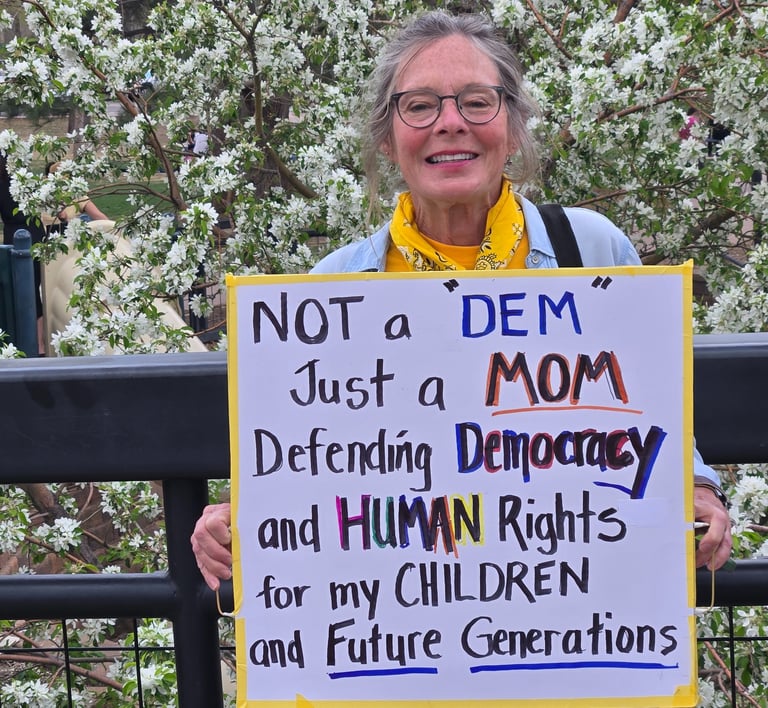 NOT a "DEM"
Just a MOM
Defending Democracy
and HUMAN Rights
for my CHILDREN
and Future Generations